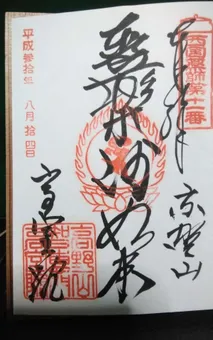 西国薬師第十一番
奉拝
高野山
薬師如来
高室院
平成参拾年 八月拾四日